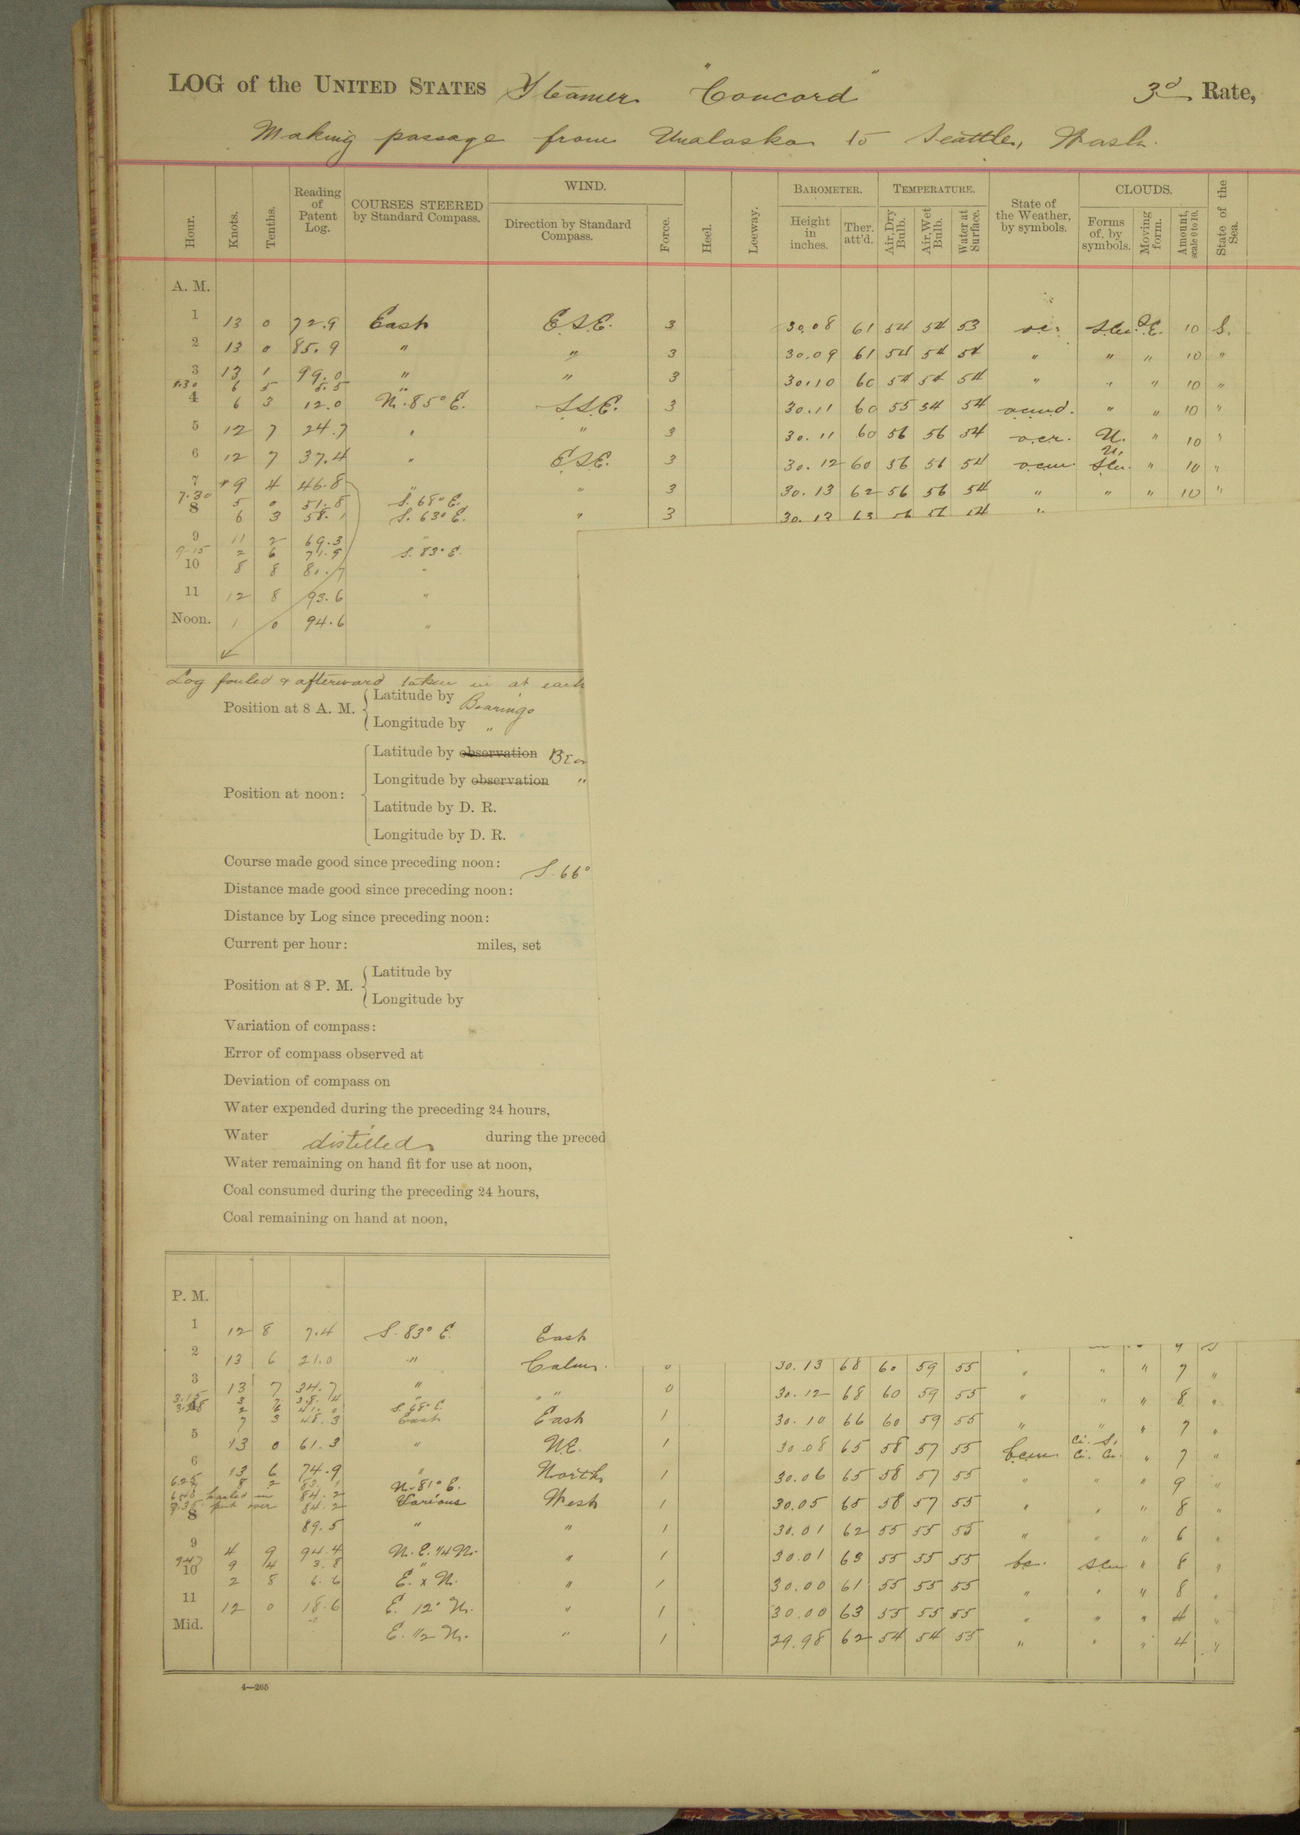 LOG of the UNITED STATES Steamer "Concord" 3d Rate,
Making passage from Unalaska to Seattle, Wash.
Hour. Knots. Tenths. Reading of Patent Log. COURSES STEERED by Standard Compass. WIND. Direction by Standard Compass. Force. Heel. Leeway. BAROMETER. Height in inches. Ther. att'd. TEMPERATURE. Air, Dry Bulb. Air, Wet Bulb. Water at Surface. State of the Weather, by symbols. CLOUDS. Forms of, by symbols. Moving form. Amount, scale 0 to 10. State of the Sea.
A. M.
1 13 0 72.9 East E.S.E. 3 30.08 61 54 54 53 10 S.
2 13 0 85.9 " " 3 30.09 61 54 54 54 " " " 10 "
3 13 1 99.0 " " 3 30.10 60 54 54 54 " " " 10 "
3.30 6 5 5.5 "
4 6 3 12.0 N. 85° E. S.S.E. 3 30.11 60 55 54 54 " " 10 "
5 12 7 24.7 " " 3 30.11 60 56 56 54 N. " 10 "
6 12 7 37.4 " E.S.E. 3 30.12 60 56 56 54 N. " 10 "
7 *9 4 46.8 " " 3 30.13 62 56 56 54 " " " 10 "
7.30 5 0 51.8 S. 68° E.
8 6 3 58.1 S. 63° E. " 3 30.13 63 56 56 54 "
9 11 2 69.3 "
9.15 2 6 71.9 S. 83° E.
10 8 8 80.7 "
11 12 8 93.6 "
Noon. 1 0 94.6 "
Log fouled & afterward taken in at each
Position at 8 A. M. Latitude by Bearings
Longitude by "
Position at noon: Latitude by observation Bea
Longitude by observation "
Latitude by D. R.
Longitude by D. R.
Course made good since preceding noon: S. 66°
Distance made good since preceding noon:
Distance by Log since preceding noon:
Current per hour: miles, set
Position at 8 P. M. Latitude by
Longitude by
Variation of compass:
Error of compass observed at
Deviation of compass on
Water expended during the preceding 24 hours,
Water distilled during the preced
Water remaining on hand fit for use at noon,
Coal consumed during the preceding 24 hours,
Coal remaining on hand at noon,
P. M.
1 12 8 7.4 S. 83° E. East
2 13 6 21.0 " Calm. 0 30.13 68 60 59 55 " " " 7 "
3 13 7 34.7 " " 0 30.12 68 60 59 55 " " " 8 "
3.15 3 7 38.4 S. 68° E.
2 6 41.0
4 7 3 48.3 East East 1 30.10 66 60 59 55 " " " 7 "
5 13 0 61.3 " N.E. 1 30.08 65 58 57 55 bcm Ci. S. Ci. Cu. " 7 "
6 13 6 74.9 " North 1 30.06 65 58 57 55 " " " 9 "
6.25 8 2 83.1 N. 81° E.
6.40 hauled in 84.2 Various West 1 30.05 65 58 57 55 " " " 8 "
7.35 put over 84.2
8 89.5 " " 1 30.01 62 55 55 55 " " " 6 "
9 4 9 94.4 N. E. 1/4 N. " 1 30.01 63 55 55 55 bc. " 8 "
9.47 9 4 3.8 "
10 2 8 6.6 E. x N. " 1 30.00 61 55 55 55 " " " 8 "
11 12 0 18.6 E. 12° N. " 1 30.00 63 55 55 55 " " " 4 "
Mid. E. 1/2 N. " 1 29.98 62 54 54 55 " " " 4 "
4—265